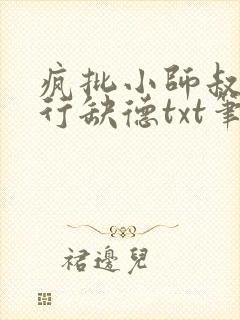 疯批小師叔
行缺德txt筆
裙邊兒